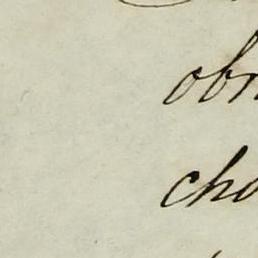 obr
cho